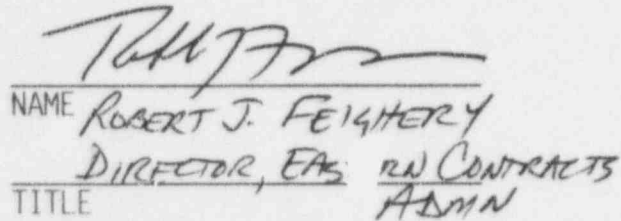 NAME ROBERT J. FEIGHERY
DIRECTOR, EAS RN CONTRACTS
TITLE ADMN